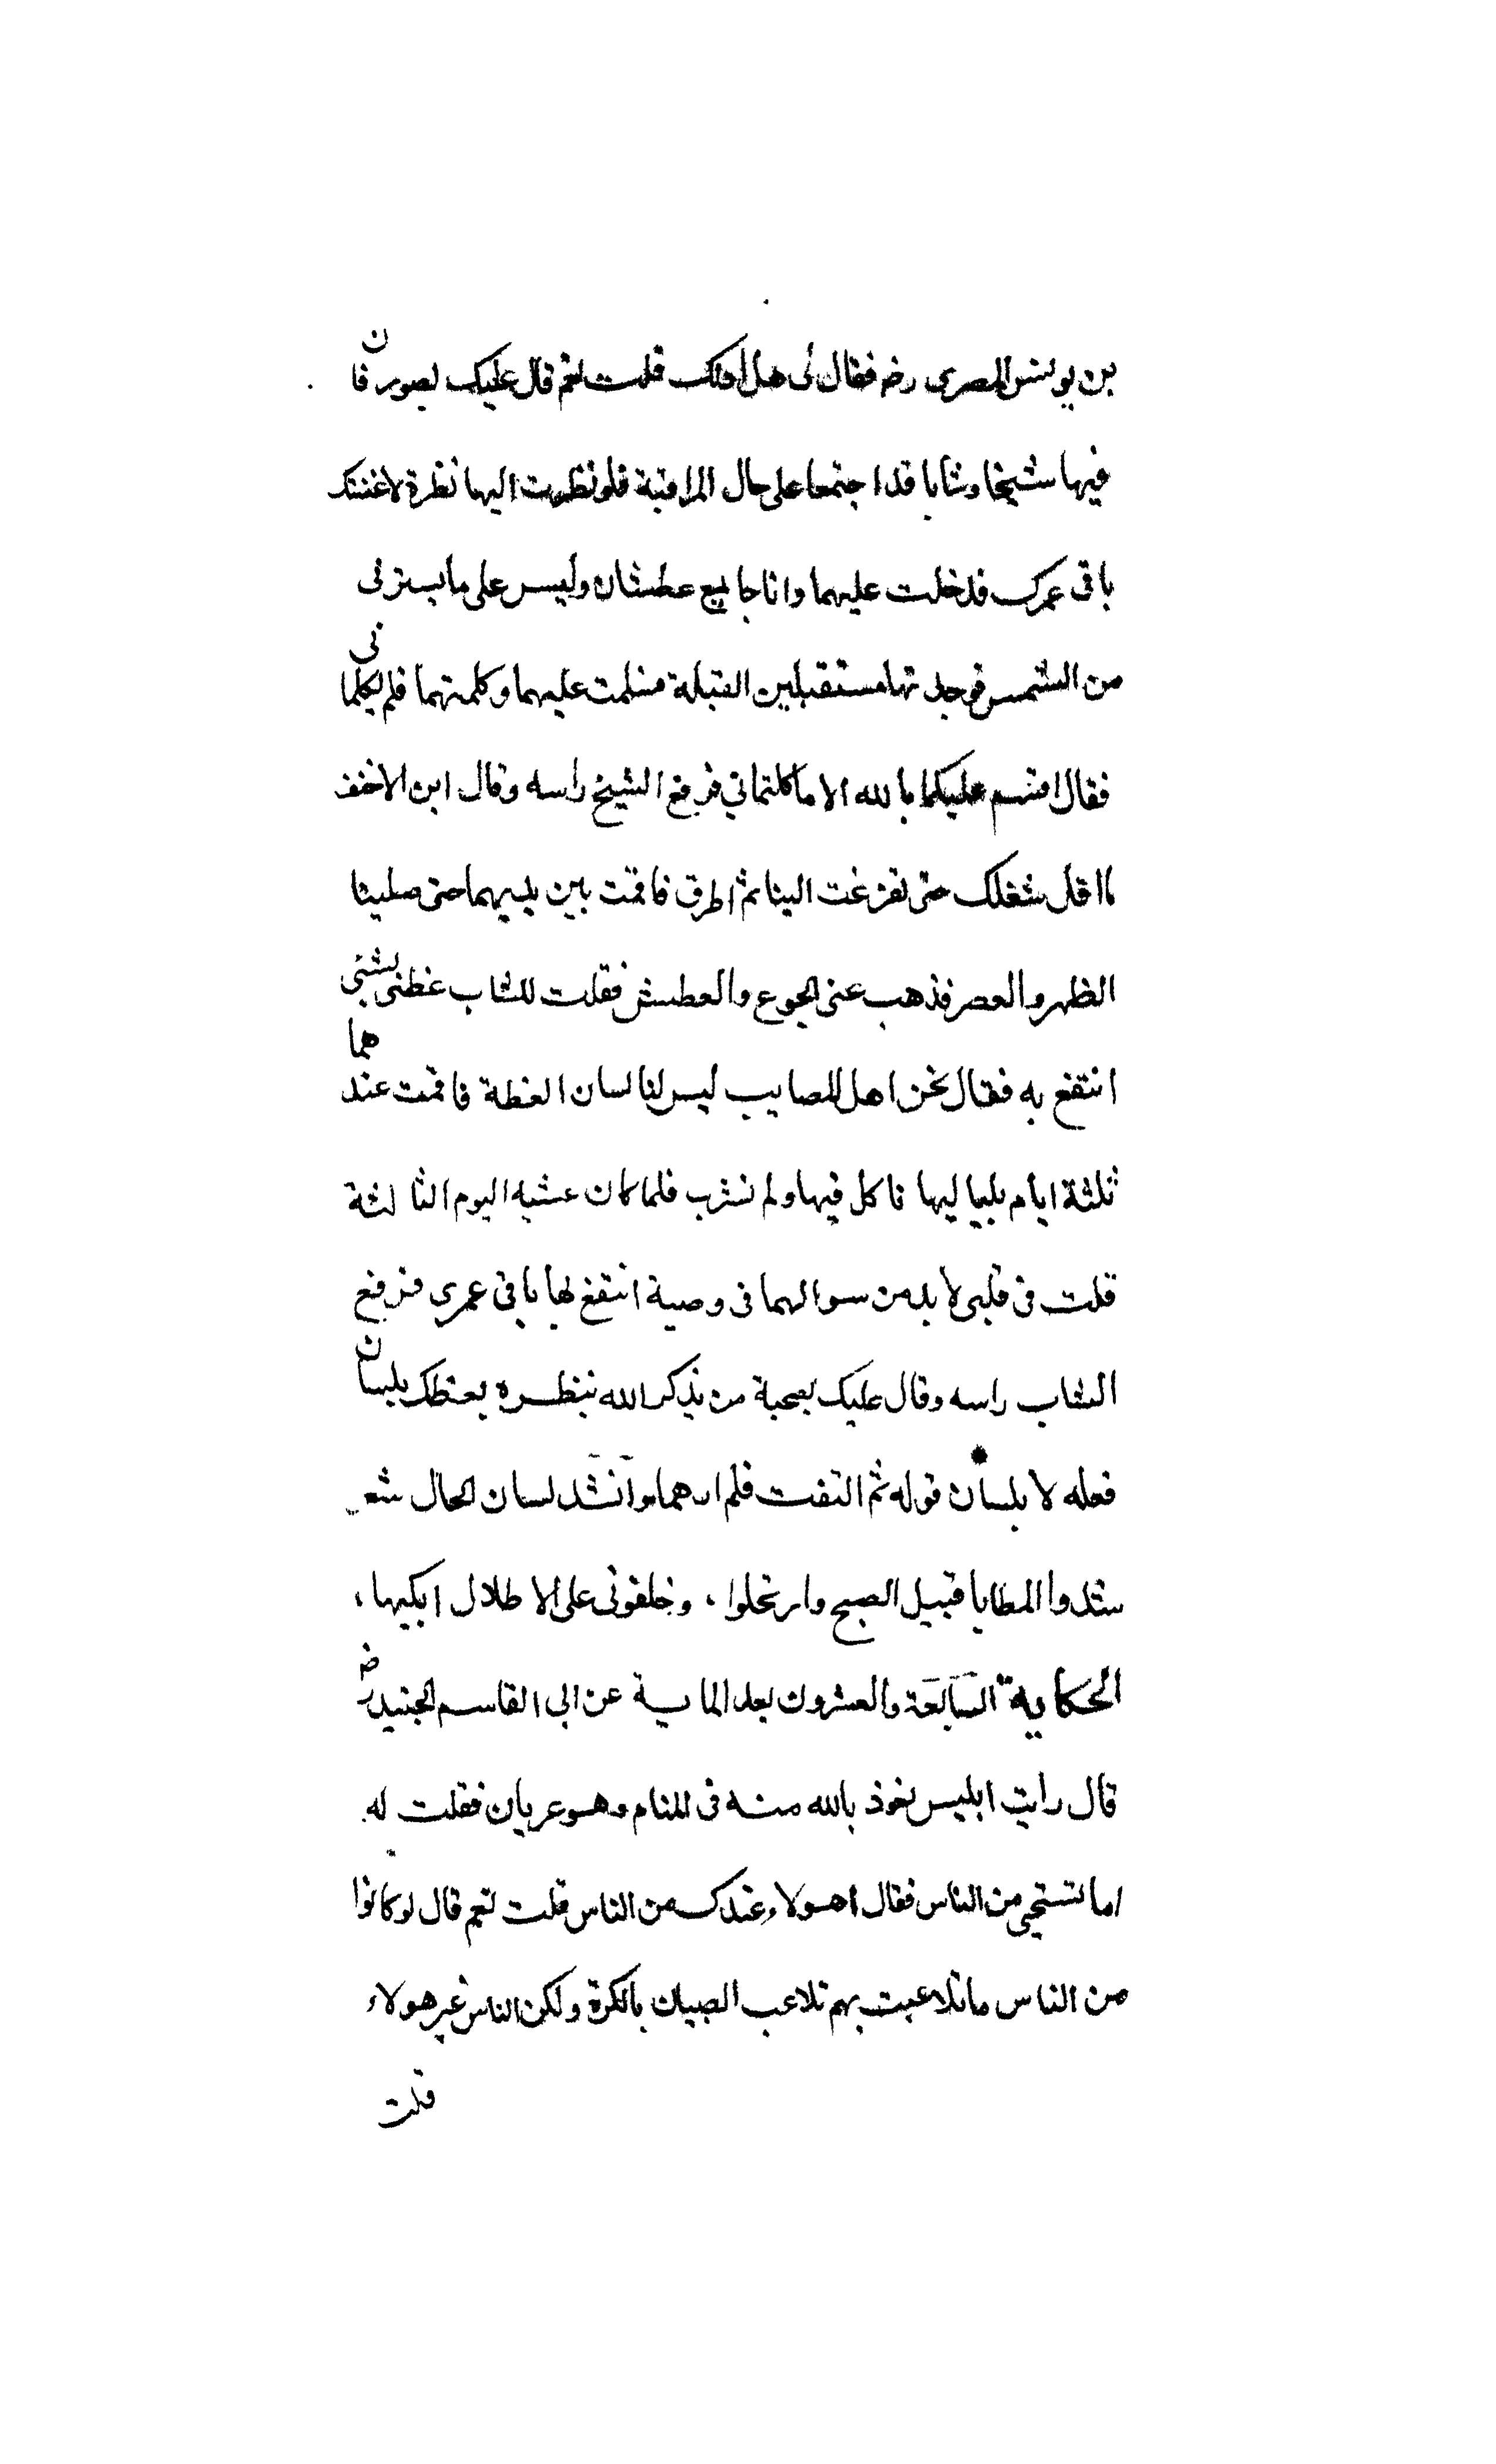 بن يونس المصرى رضه فقال لى هل ادلك قلت نعم قال عليك بصور فان
فيها شيخا وشابا قد اجتمعا على حال المراقبة فلو نظرت اليها نظرة لاغنتك
باقى عمرك فدخلت عليهما وانا جايع عطشان وليس على ما يسترنى
من الشمس فوجدتهما مستقبلين القبلة فسلمت عليهما وكلمتهما فلم يكلمانى
فقال اقسم عليكما بالله الا ما كلتمانى فرفع الشيخ راسه وقال ابن الاخفف
ما اقل شغلك حتى تفرغت الينا ثم اطرق فاقمت بين يديهما حتى صلينا
الظهر والعصر فذهب عنى الجوع والعطش فقلت للشاب عظنى بشئى
انتفع به فقال نحن اهل المصايب ليس لنا لسان العظة فاقمت عندهما
ثلثة ايام بلياليها ناكل فيها ولم نشرب فلما كان عشيه اليوم الثالثة
قلت فى قلبى لا بد من سوالهما فى وصية انتفع بها باقى عمرى فرفع
الشاب راسه وقال عليك بصحبة من يذكر الله بنظره يعظك بلسان
فعله لا بلسان قوله ثم التفت فلم ارهما وانشد لسان الحال شعر
شدوا المطايا قبيل الصبح وارتحلوا ، وخلفونى على الاطلال ابكيها ،
الحكاية السابعة والعشرون بعد الماية عن ابى القاسم الجنيد رض
قال رايت ابليس نعوذ بالله منه فى المنام وهو عريان فقلت له
اما تستحيى من الناس فقال اهولاء عندك من الناس قلت نعم قال لو كانوا
من الناس ما تلاعبت بهم تلاعب الصبيان بالكرة ولكن الناس غير هولاء
قلت